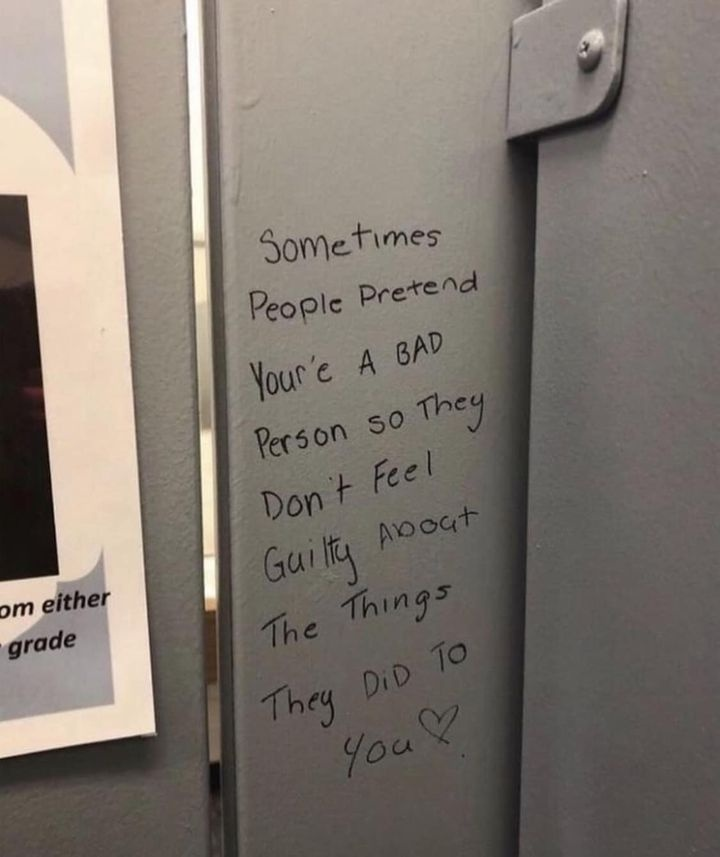 Sometimes
People Pretend
Your'e A BAD
Person so They
Don't Feel
Guilty About
The Things
They DiD To
You♡.
om either
grade